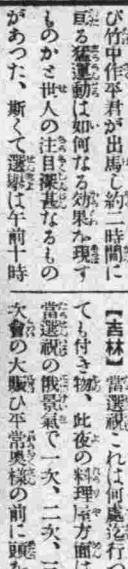 び竹中作平君が出馬し約二時間に
亘る猛運動は如何なる効果を現す
ものかと世人の注目深甚なるもの
があつた、斯くて選擧は午前十時
【吉林】當選祝 これは何處迄行つ
ても付き物、此夜の料理屋方面は
當選祝の俄景氣で一次、二次、三
次會の大賑ひ平常奥樣の前に頭